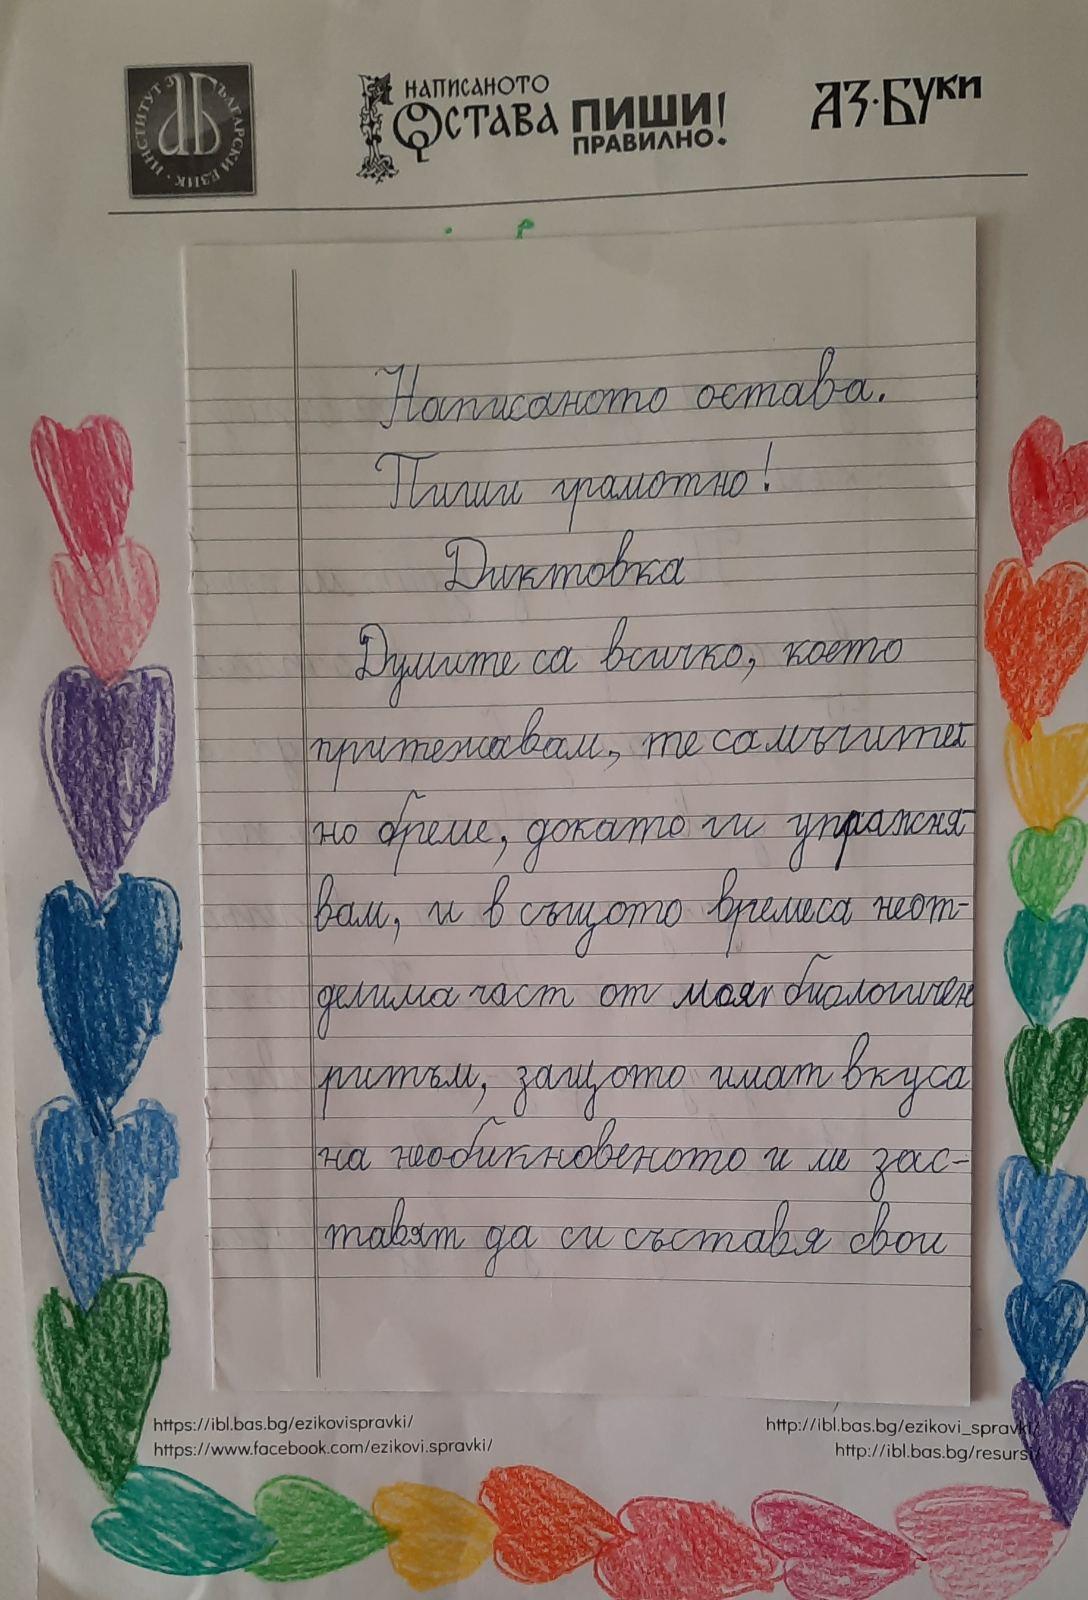 ИНСТИТУТ ЗА БЪЛГАРСКИ ЕЗИК
НАПИСАНОТО
ОСТАВА ПИШИ!
ПРАВИЛНО.
АЗ·БУКИ
Написаното остава.
Пиши грамотно!
Диктовка
Думите са всичко, което
притежавам, те са мъчител
но бреме, докато ги упражня-
вам, и в същото време са неот-
делима част от моя биологичен
ритъм, защото имат вкуса
на необикновеното и ме зас-
тавят да си съставя свои
https://ibl.bas.bg/ezikovispravki/
https://www.facebook.com/ezikovi.spravki/
http://ibl.bas.bg/ezikovi_spravki/
http://ibl.bas.bg/resursi/